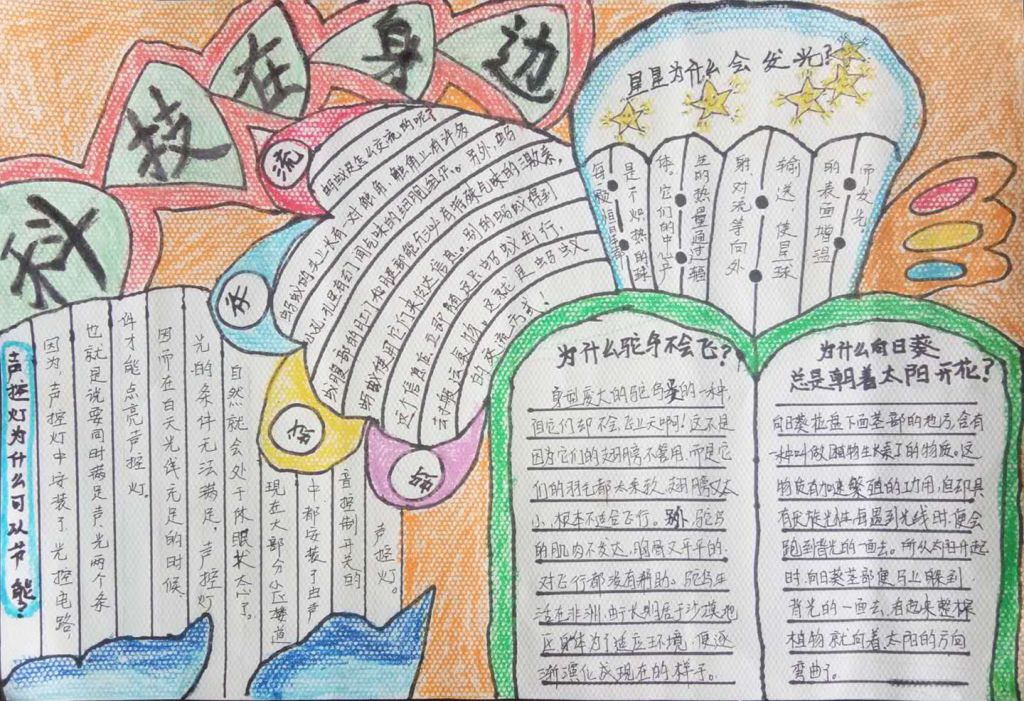 科技在身边
星星为什么会发光?
每颗恒星都
是个炽热的球
体。它们的中心产
生的热量通过辐
射、对流等向外
输送,使星球
的表面增温
而发光。
蚂
蚁
交
流
蚂蚁是怎么交流的呢?
蚂蚁的头上长有一对触角,触角上有许多
小孔,孔里有专门闻气味的细胞组织。另外,蚂
蚁腹部的肛门和腿部能分泌有特殊气味的激素,
蚂蚁使用它们来传达信息。别的蚂蚁得到
这个信息后,立即随这只蚂蚁出行,
寻找这食物。这就是蚂蚁
的交流方式!
声控灯为什么可以节能?
因为,声控灯中安装了光控电路
也就是说要同时满足声、光两个条
件才能点亮声控灯。
因而在白天光线充足的时候
光的条件无法满足,声控灯
自然就会处于休眠状态了。
现在大部分小区楼道
中,都安装了由声
音控制开关的
声控灯。
为什么驼鸟不会飞?
身型庞大的驼鸟是鸟的一种,
但它们却不会飞上天啊!这不是
因为它们的翅膀不管用,而是它
们的羽毛都太柔软,翅膀又太
小,根本不适合飞行。另外,驼鸟
的肌肉不发达,胸骨又平平的,
对飞行都没有帮助。驼鸟生
活在非洲,由于长期居于沙漠地
区,身体为了适应环境,便逐
渐演化成现在的样子。
为什么向日葵
总是朝着太阳开花?
向日葵花盘下面茎部的地方,含有
一种叫做植物生长素丁的物质。这
物质有加速繁殖的功用,但却具
有厌旋光性,每遇到光线时,便会
跑到背光的一面去。所以太阳升起
时,向日葵茎部便马上躲到
背光的一面去,看起来整棵
植物就向着太阳的方向
弯曲了。